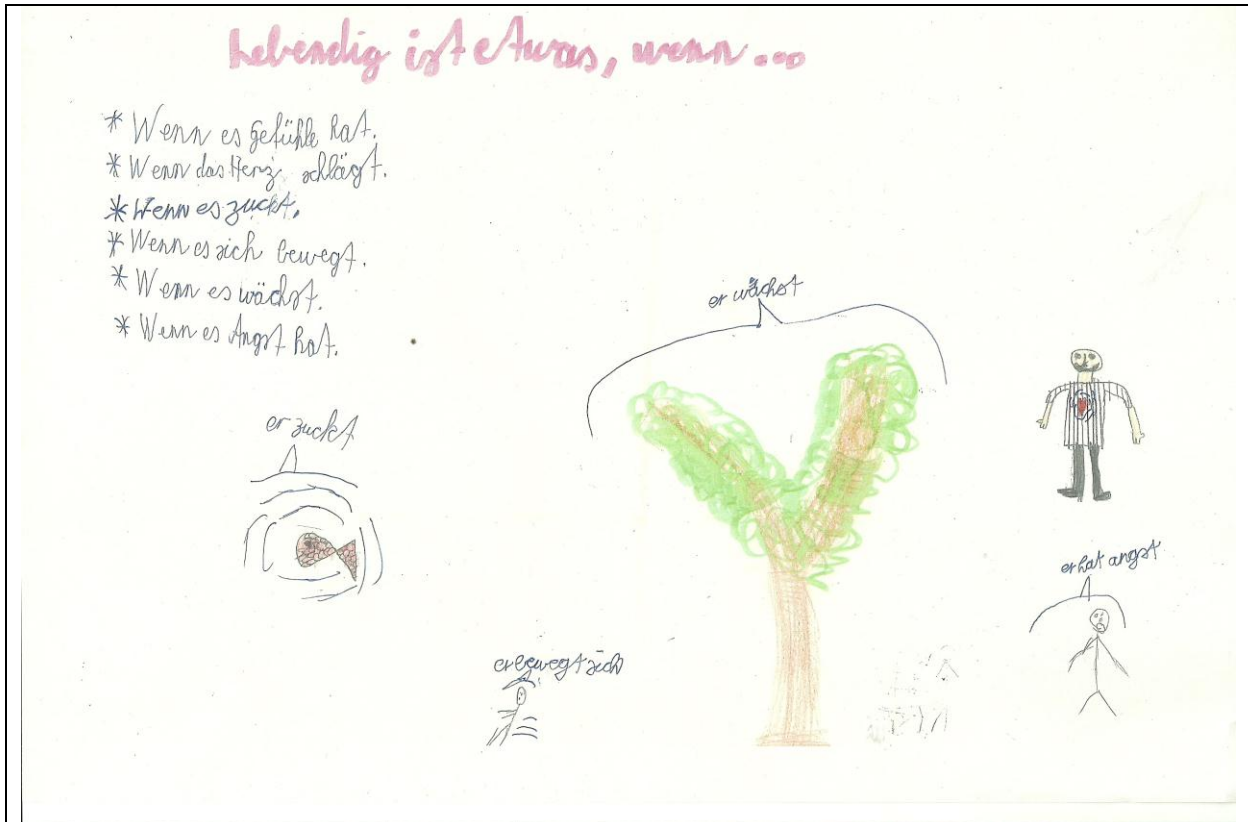 Lebendig ist etwas, wenn...
* Wenn es gefühle hat.
* Wenn das Herz schlägt.
* Wenn es zuckt.
* Wenn es sich bewegt.
* Wenn es wächst.
* Wenn es Angst hat.
er wächst
er zuckt
er hat angst
er bewegt sich